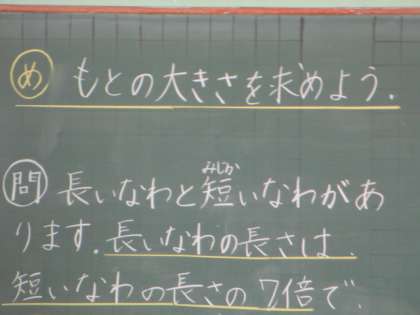 め もとの大きさを求めよう.
問 長いなわと短いなわがあ
みじか
ります.長いなわの長さは.
短いなわの長さの7倍で.